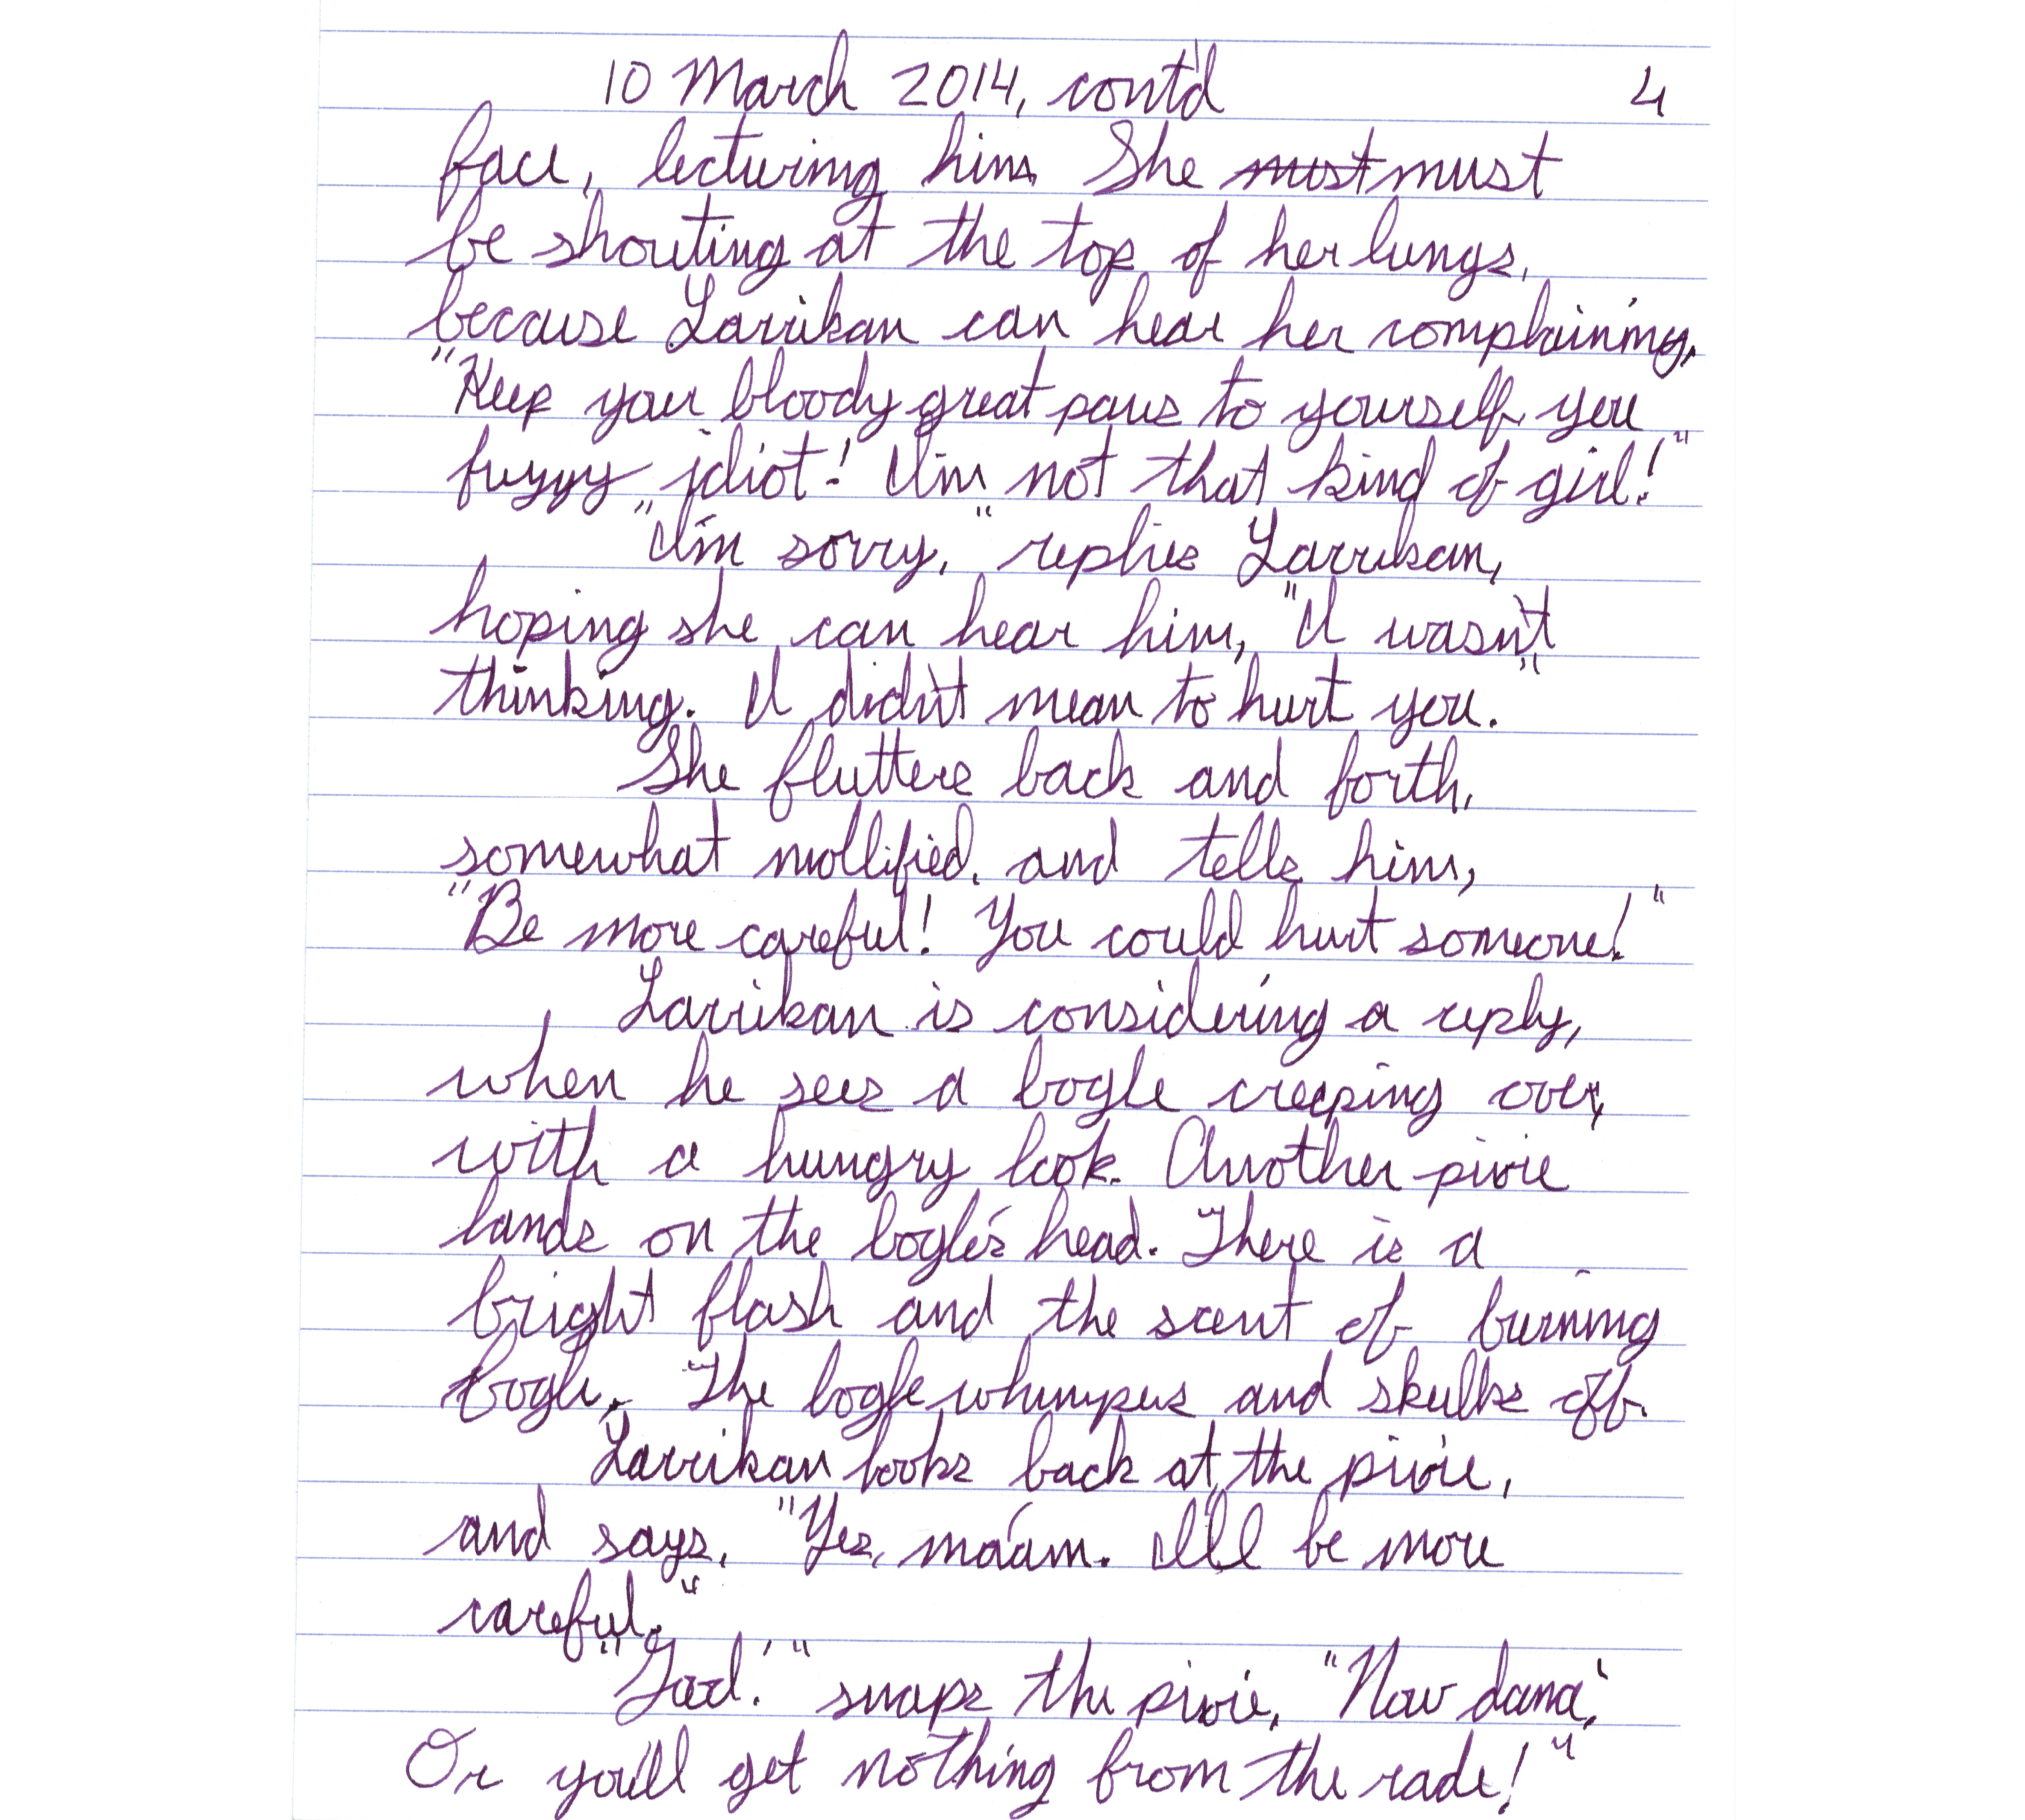 10 March 2014, cont'd 4
face, lecturing him. She must must
be shouting at the top of her lungs,
because Larrikan can hear her complaining,
"Keep your bloody great paws to yourself you
fuzzy idiot! I'm not that kind of girl!"
"I'm sorry," replies Larrikan,
hoping she can hear him, "I wasn't
thinking. I didn't mean to hurt you."
She flutters back and forth,
somewhat mollified, and tells him,
"Be more careful! You could hurt someone!"
Larrikan is considering a reply,
when he sees a bogle creeping over,
with a hungry look. Another pixie
lands on the bogle's head. There is a
bright flash and the scent of burning
bogle. The bogle whimpers and skulks off.
Larrikan looks back at the pixie,
and says, "Yes, ma'am. I'll be more
careful."
"Good!" snaps the pixie, "Now dance!
Or you'll get nothing from the rade!"